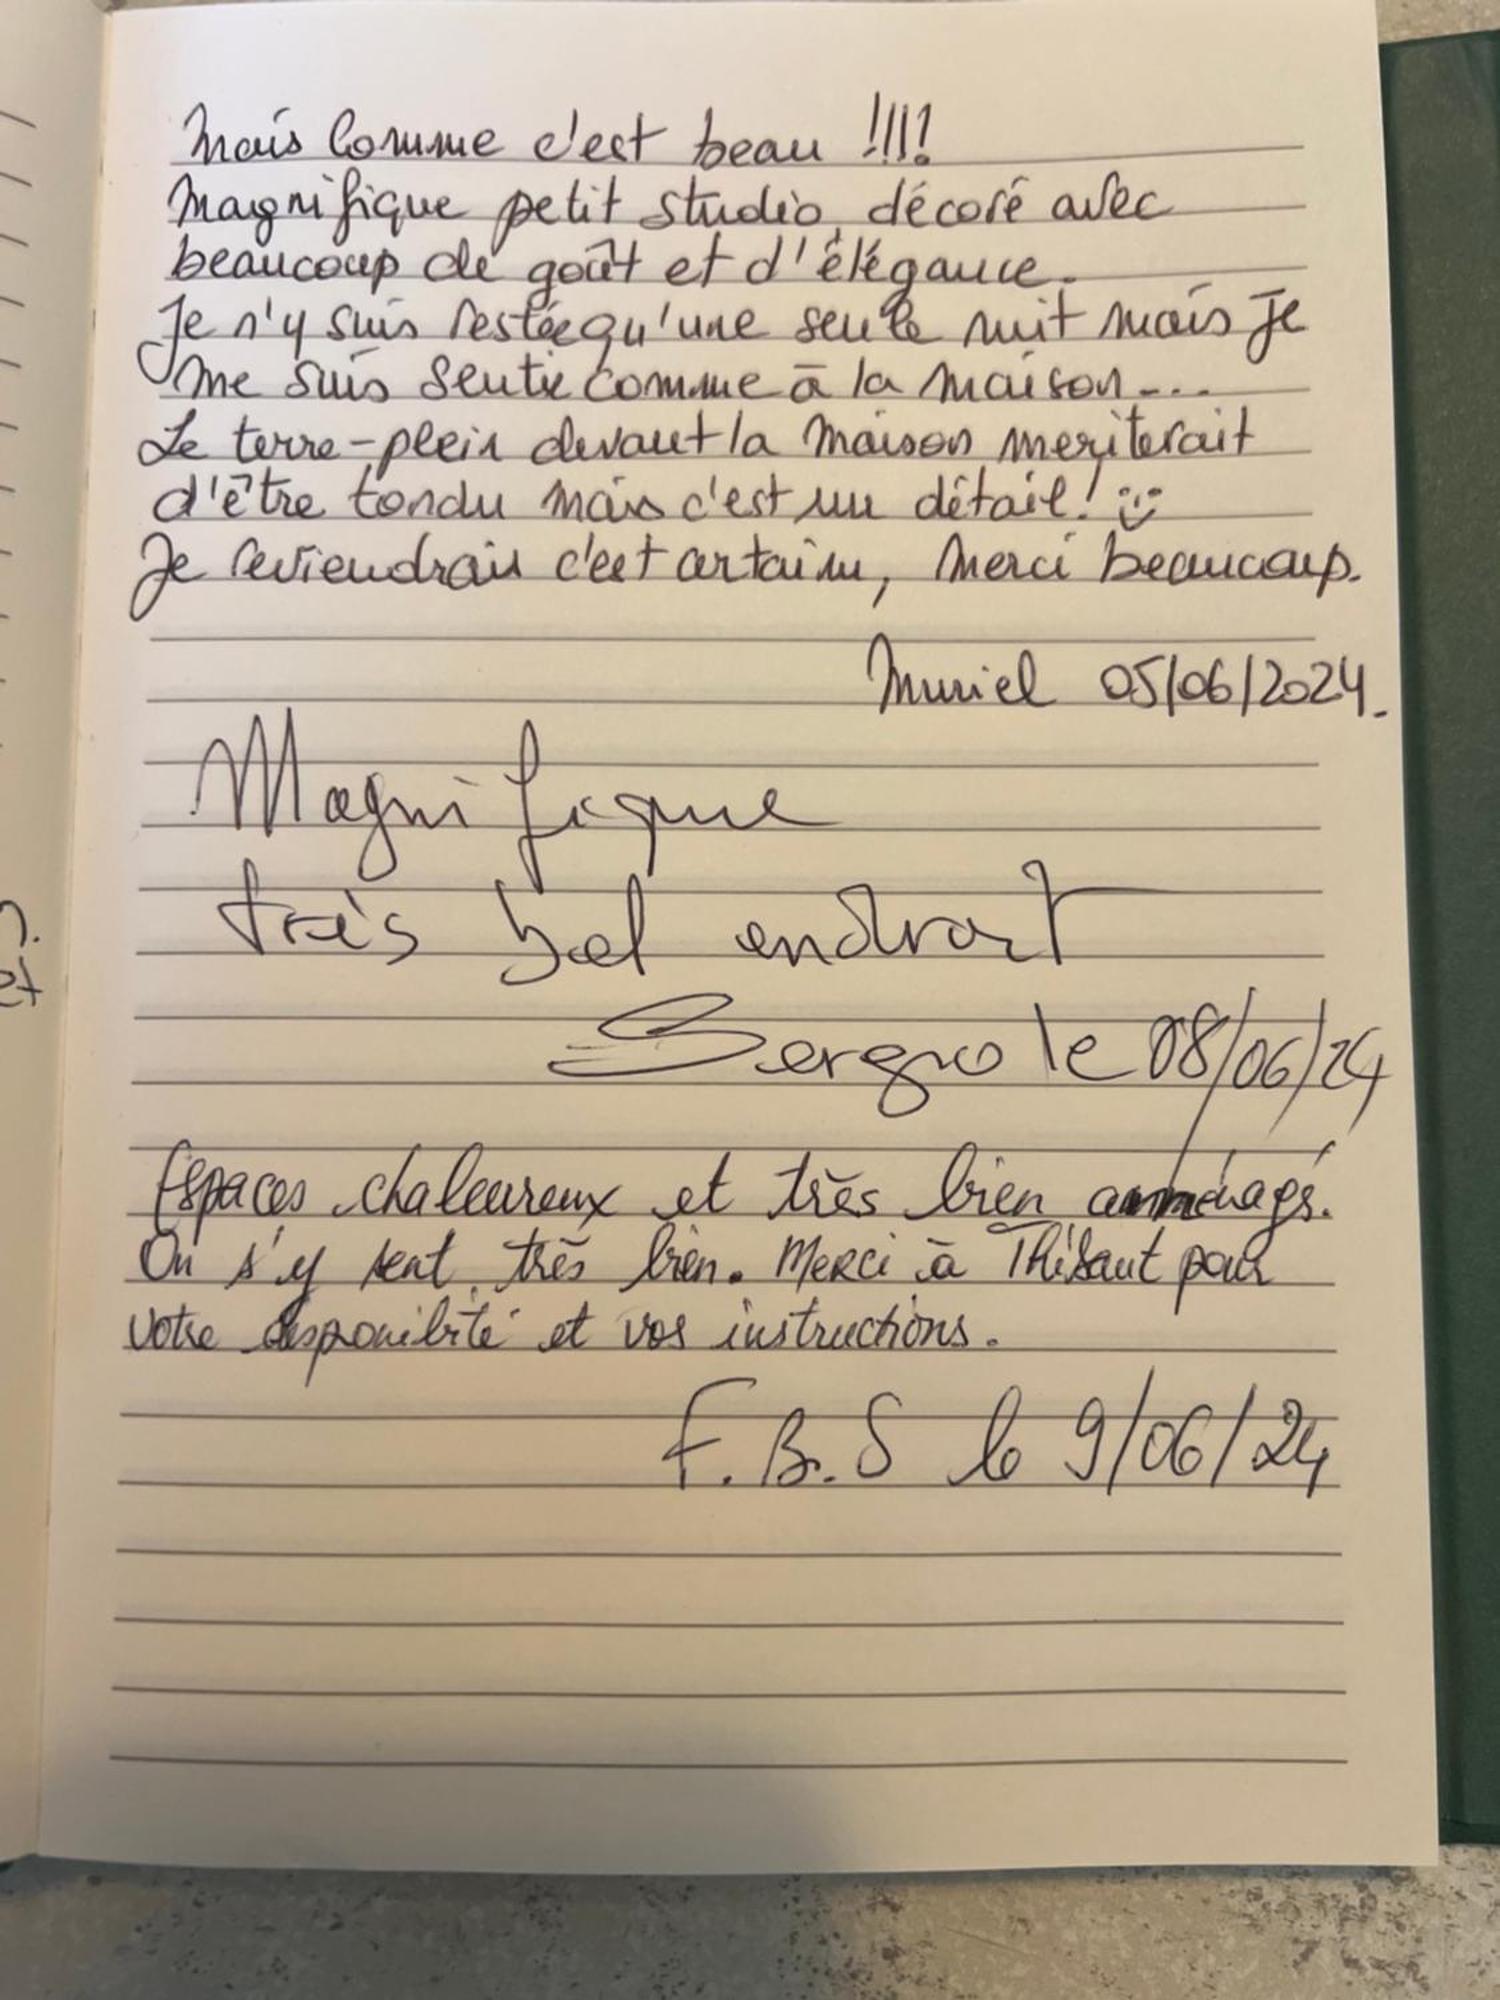 Mais comme c'est beau !!!!
Magnifique petit studio, décoré avec
beaucoup de goût et d'élégance.
Je n'y suis restée qu'une seule nuit mais je
me suis sentie comme à la maison...
Le terre-plein devant la maison meriterait
d'être tondu mais c'est un détail! :)
Je reviendrais c'est certain, merci beaucoup.
Muriel 05/06/2024.
Magnifique
très bel endroit
Sergio le 08/06/24
Espaces chaleureux et très bien aménagés.
On s'y sent très bien. Merci à Thibaut pour
votre disponibilité et vos instructions.
F.B.S le 9/06/24
et